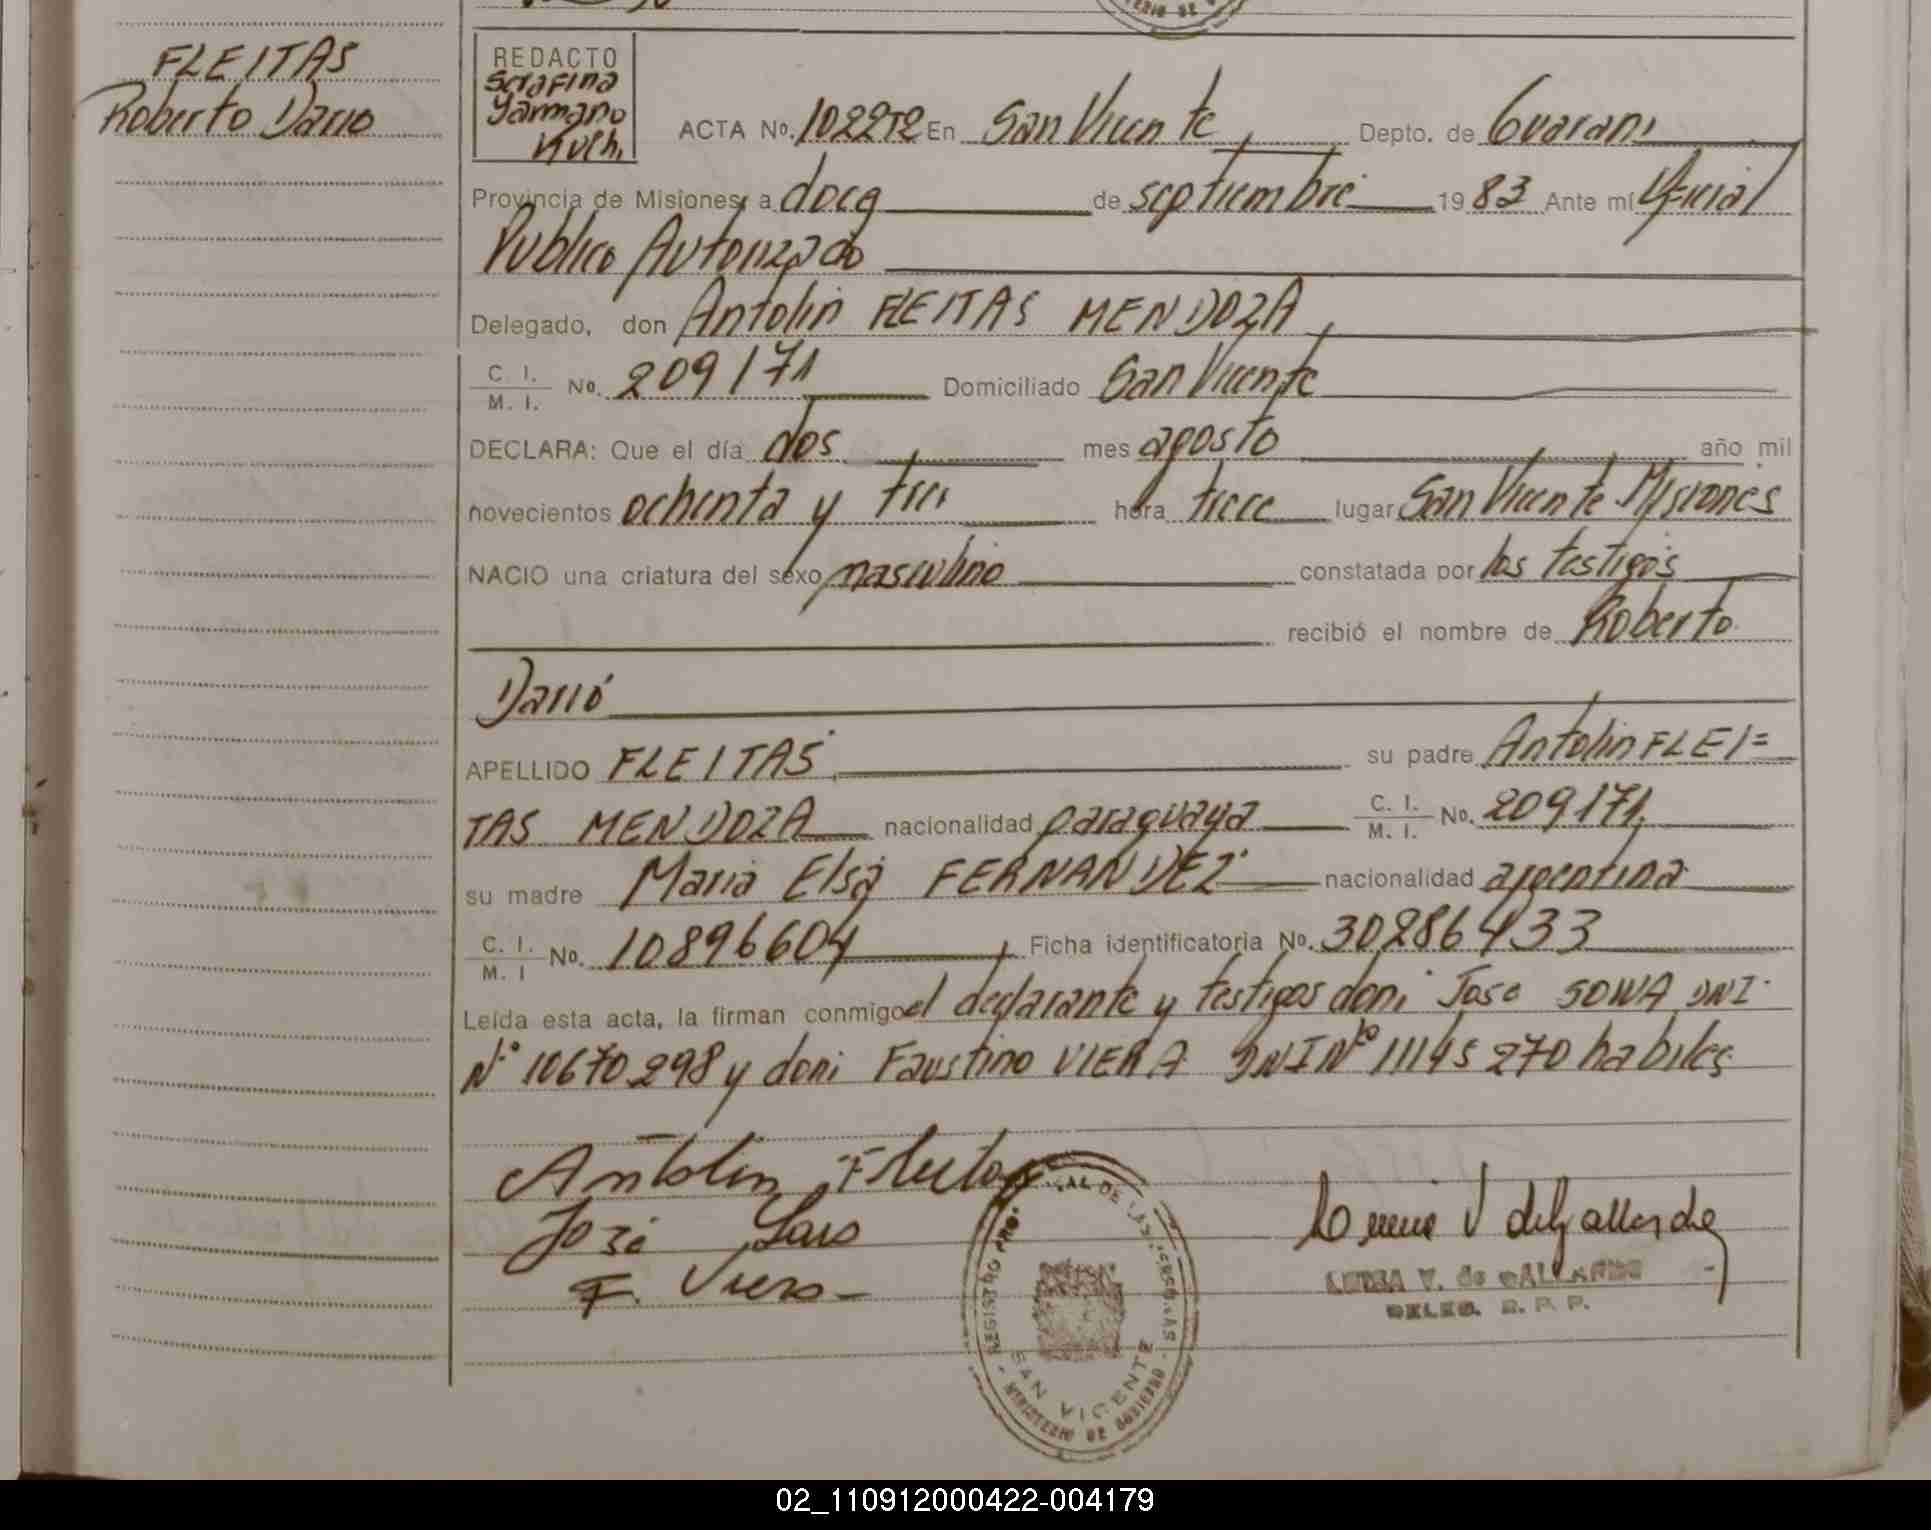 FLEITAS
Roberto Dario
REDACTO
Serafina
Yarmano
Kuth.
ACTA No. 1022T2 En San Vicente, Depto. de Guarani
Provincia de Misiones, a doce de septiembre 1983 Ante mí Oficial
Publico Autorizado
Delegado, don Antolin FLEITAS MENDOZA,
C. I. / M. I. No. 209171 Domiciliado San Vicente
DECLARA: Que el día dos mes agosto año mil
novecientos ochenta y tres hora trece lugar San Vicente Misiones
NACIO una criatura del sexo masculino constatada por los testigos
recibió el nombre de Roberto
Darió
APELLIDO FLEITAS, su padre Antolin FLEI=
TAS MENDOZA nacionalidad paraguaya C. I. / M. I. No. 209171,
su madre Maria Elsa FERNANDEZ nacionalidad argentina
C. I. / M. I No. 10896604, Ficha identificatoria No. 30286433
Leída esta acta, la firman conmigo el declarante y testigos don: Jose SOWA DNI.
N° 10670298 y don: Faustino VIERA DNI N° 11145270 habiles
Antolin Fleitas
José
F. Viera
V de Gallardo
V. de GALLARDO
DELEG. R. P. P.
REGISTRO PRO. AL DE LAS PERSONAS
SAN VICENTE
MINISTERIO DE GOBIERNO
02_110912000422-004179